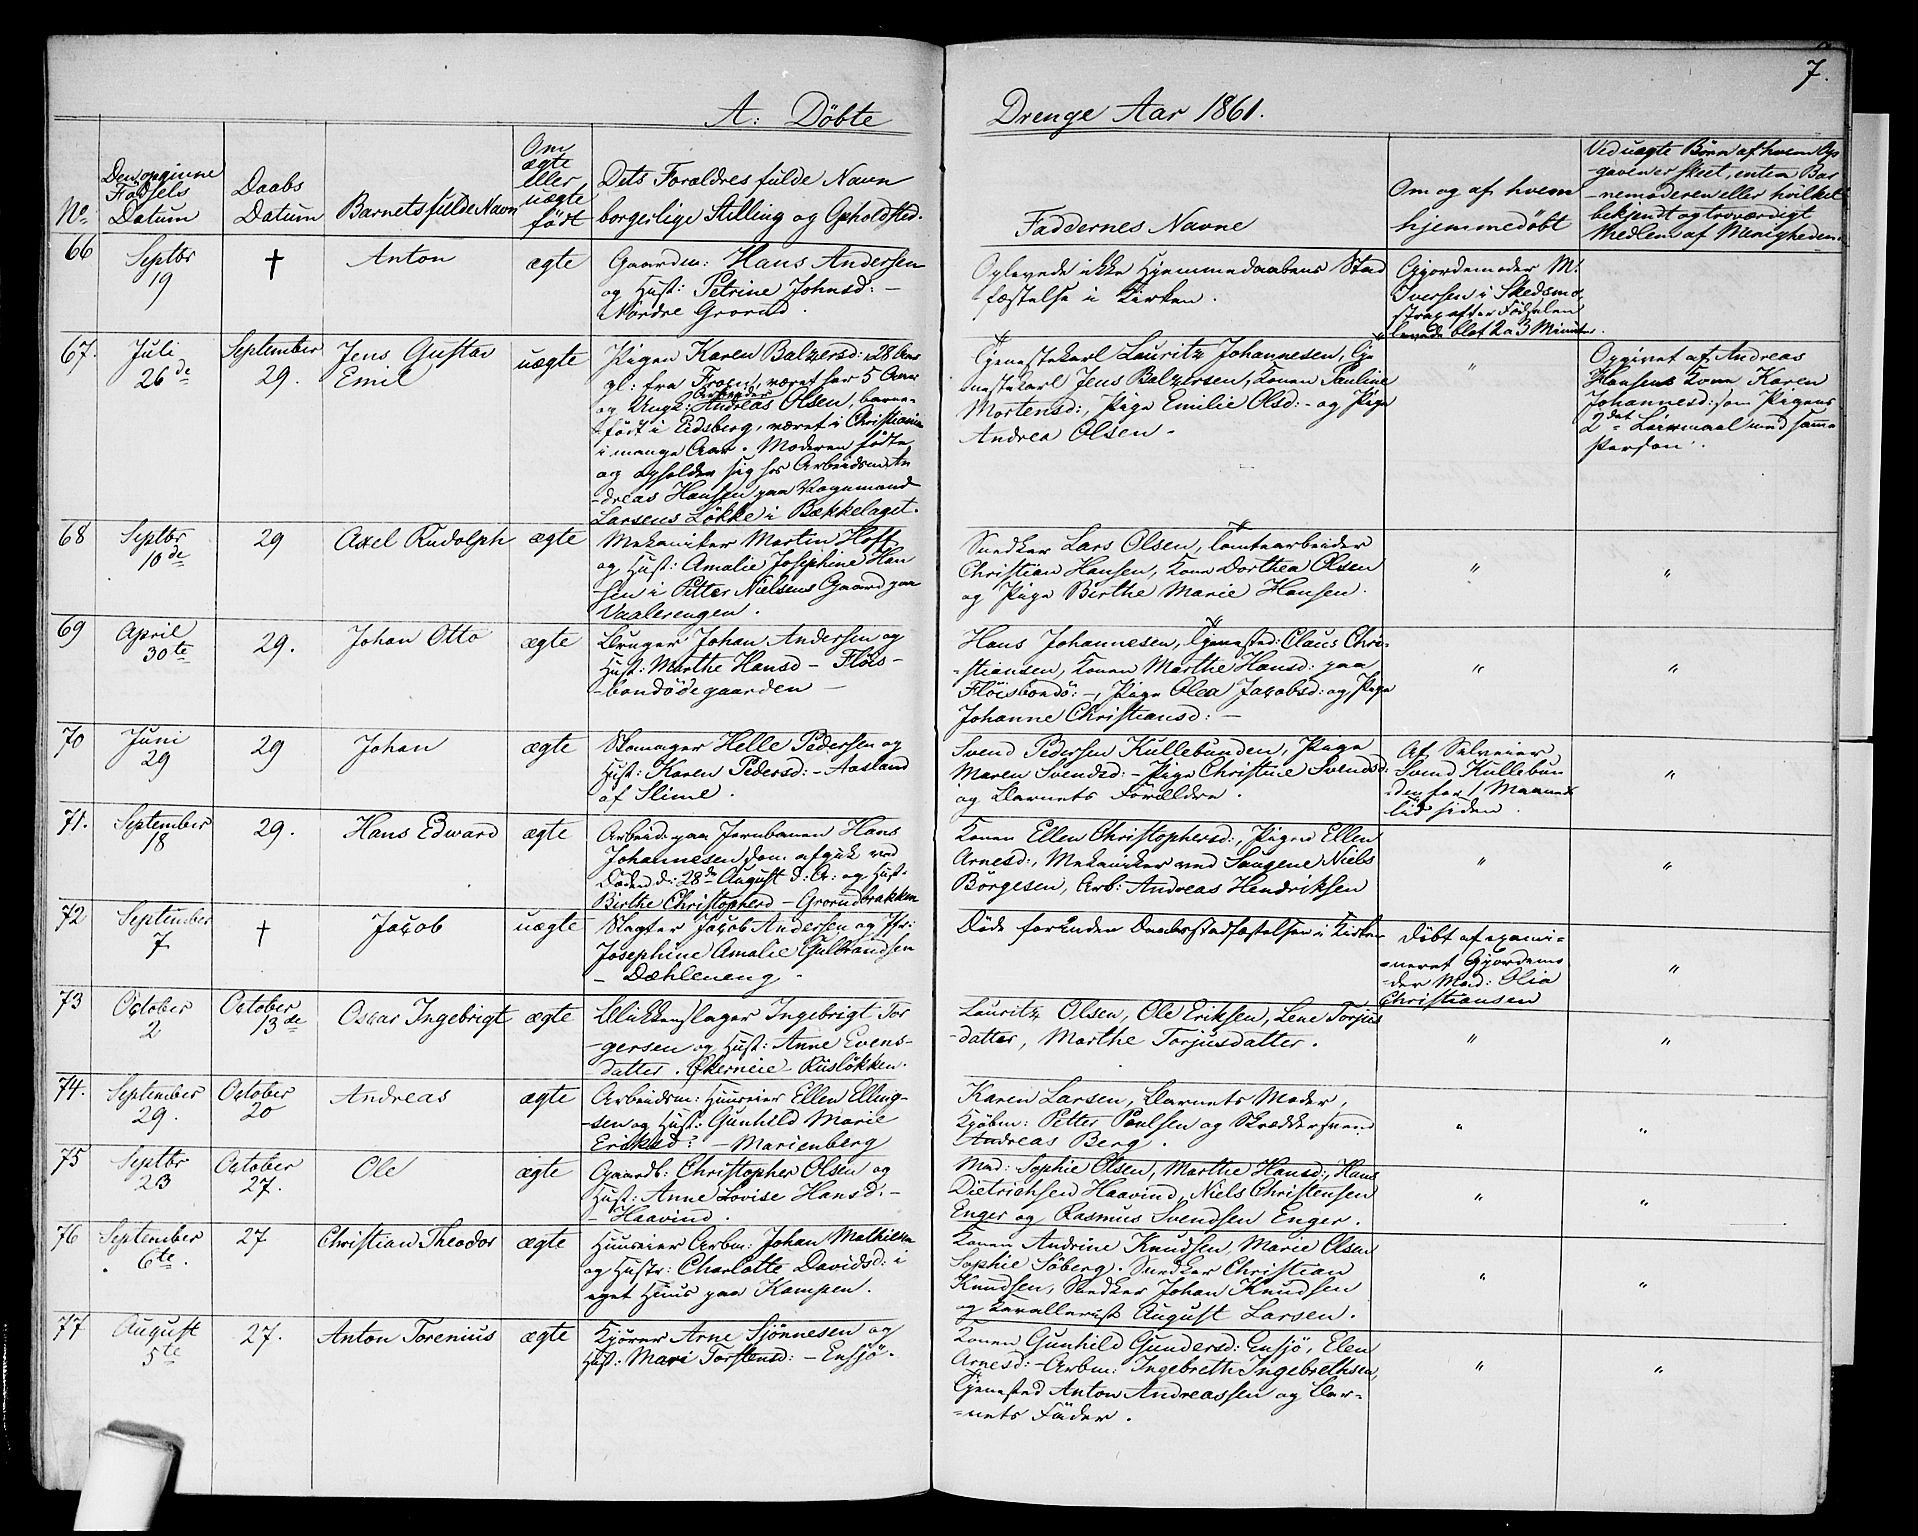 7.
A: Döbte
Drenge Aar 1861.
No
Den opgivne Fødsels Datum
Daabs Datum
Barnets fulde Navn
Om ægte eller uægte födt
Dets Forældres fulde Navn borgerlige Stilling og Opholdsted.
Faddernes Navne
Om og af hvem hjemmedöbt
Ved uægte Børn af hvem Opgaven er skeet, enten Barnemoderen eller hvilket bekjendt og troværdigt Medlem af Menigheden.
66
Septbr 19
†
Anton
ægte
Gaardm: Hans Andersen
og Hust: Petrine Johnsd: –
Nordre Grorud.
Oplevede ikke Hjemmedaabens Stad
fæstelse i Kirken.
Gjordemoder M:
Iversen i Skedsmo
strax efter Födselen
levede blot 2 a 3 Minuter.
67.
Juli 26de
September 29.
Jens Gustav
Emil
uægte
Pigen Karen Balzersd: 28 Aar
gl: fra Frogn, været her 5 Aar
og Ungk: Arbeider Andreas Olsen, barne-
-födt i Eidsberg, været i Christiania
i mange Aar. Moderen födte
og opholder sig hos Arbeidsm: An
-dreas Hansen paa Vognmand
Larsens Løkke i Bækkelaget.
Tjenestekarl Lauritz Johannesen, Tje
nestekarl Jens Balzersen, Konen Pauline
Mortensd:, Pige Emilie Olsd: – og Pige
Andrea Olsen –
"
Opgivet af Andreas
Hansens Kone Karen
Johannesd: som Pigens
2det Leiermaal med samme
Person.
68
Septbr 10de
29
Axel Rudolph
ægte
Mekaniker Martin Hoff
og Hust: Amalie Josephine Han
sen i Petter Nielsens Gaard paa
Vaalerengen.
Snedker Lars Olsen, Tomtearbeider
Christian Hansen, Kone Dorthea Olsen
og Pige Birthe Marie Hansen.
"
"
69
April 30te
29.
Johan Otto
ægte
Bruger Johan Andersen og
Hust: Marthe Hansd – Flöis-
-bondödegaarden –
Hans Johannesen, Tjenested: Claus Chri-
-stiansen, Konen Marthe Hansd: paa
Flöisbondö: –, Pige Olea Jacobsd: og Pige
Johanne Christiansd: –
"
"
70
Juni 29
29
Johan
ægte
Skomager Helle Pedersen og
Hust: Karen Pedersd: – Aasland
af Slime.
Svend Pedersen Kullebunden, Pige
Maren Svendsd: – Pige Christine Svendsd:
og Barnets Forældre.
Af Selveier
Svend Kullebun
den for 1 Maaneds
tid siden.
"
71.
September 18
29.
Hans Edward
ægte
Arbeid: paa Jernbanen Hans
Johannesen som afgik ved
Döden d: 28de August d: A: og Hust:
Birthe Christophersd – Grorudbrakken
Konen Ellen Christophersd:, Pigen Ellen
Arnesd:, Mekaniker ved Saugene Niels
Börgesen, Arb: Andreas Hendriksen
"
"
72
September 7.
†
Jacob
uægte
Slagter Jacob Andersen og Pfr:
Josephine Amalie Gulbrandsen
– Dæhleneng –
Döde forinden Daabsstadfæstelsen i Kirken
Döbt af exami-
-neret Gjordemo-
-der Mad: Olia
Christiansen
"
73
October 2
October 13de
Oscar Ingebrigt
ægte
Blikkenslager Ingebrigt Tor
-gersen og Hust: Anne Evens-
datter. Økerneie Risløkken.
Lauritz Olsen, Ole Eriksen, Lene Torjus
-datter, Marthe Torjusdatter.
"
"
74.
September 29.
October 20
Andreas
ægte
Arbeidsm: Huuseier Ellen Elling-
-sen og Hust: Gunhild Marie
Eriksd: – Marienberg
Karen Larsen, Barnets Moder,
Kjöbm: Petter Poulsen og Skræddersvend
Andreas Berg.
"
"
75
Septbr 23
October 27.
Ole
ægte
Gaardb: Christopher Olsen og
Hust: Anne Lovise Hansd: –
– Haavind.
Mad: Sophie Olsen, Marthe Hansd:, Hans
Dietrichsen Haavind, Niels Christensen
Enger og Rasmus Svendsen Enger.
"
"
76
September 6te.
27
Christian Theodor
ægte
Huuseier Arbm: Johan Mathisen
og Hustr: Charlotte Davidsd: i
eget Huus paa Kampen.
Konen Andrine Knudsen, Marie Olsen
Sophie Söberg. Snedker Christian
Knudsen, Snedker Johan Knudsen
og Kavallerist August Larsen.
"
"
77
August 5te
27.
Anton Torenius
ægte
Kjörer Arne Sjönnesen og
Hust: Mari Torstensd: – Ensjö.
Konen Gunhild Gundersd: Ensjö, Elen
Arnesd: – Arbm: Ingebreth Ingebrethsen,
Tjenested Anton Andreassen og Bar-
-nets Fader.
"
"